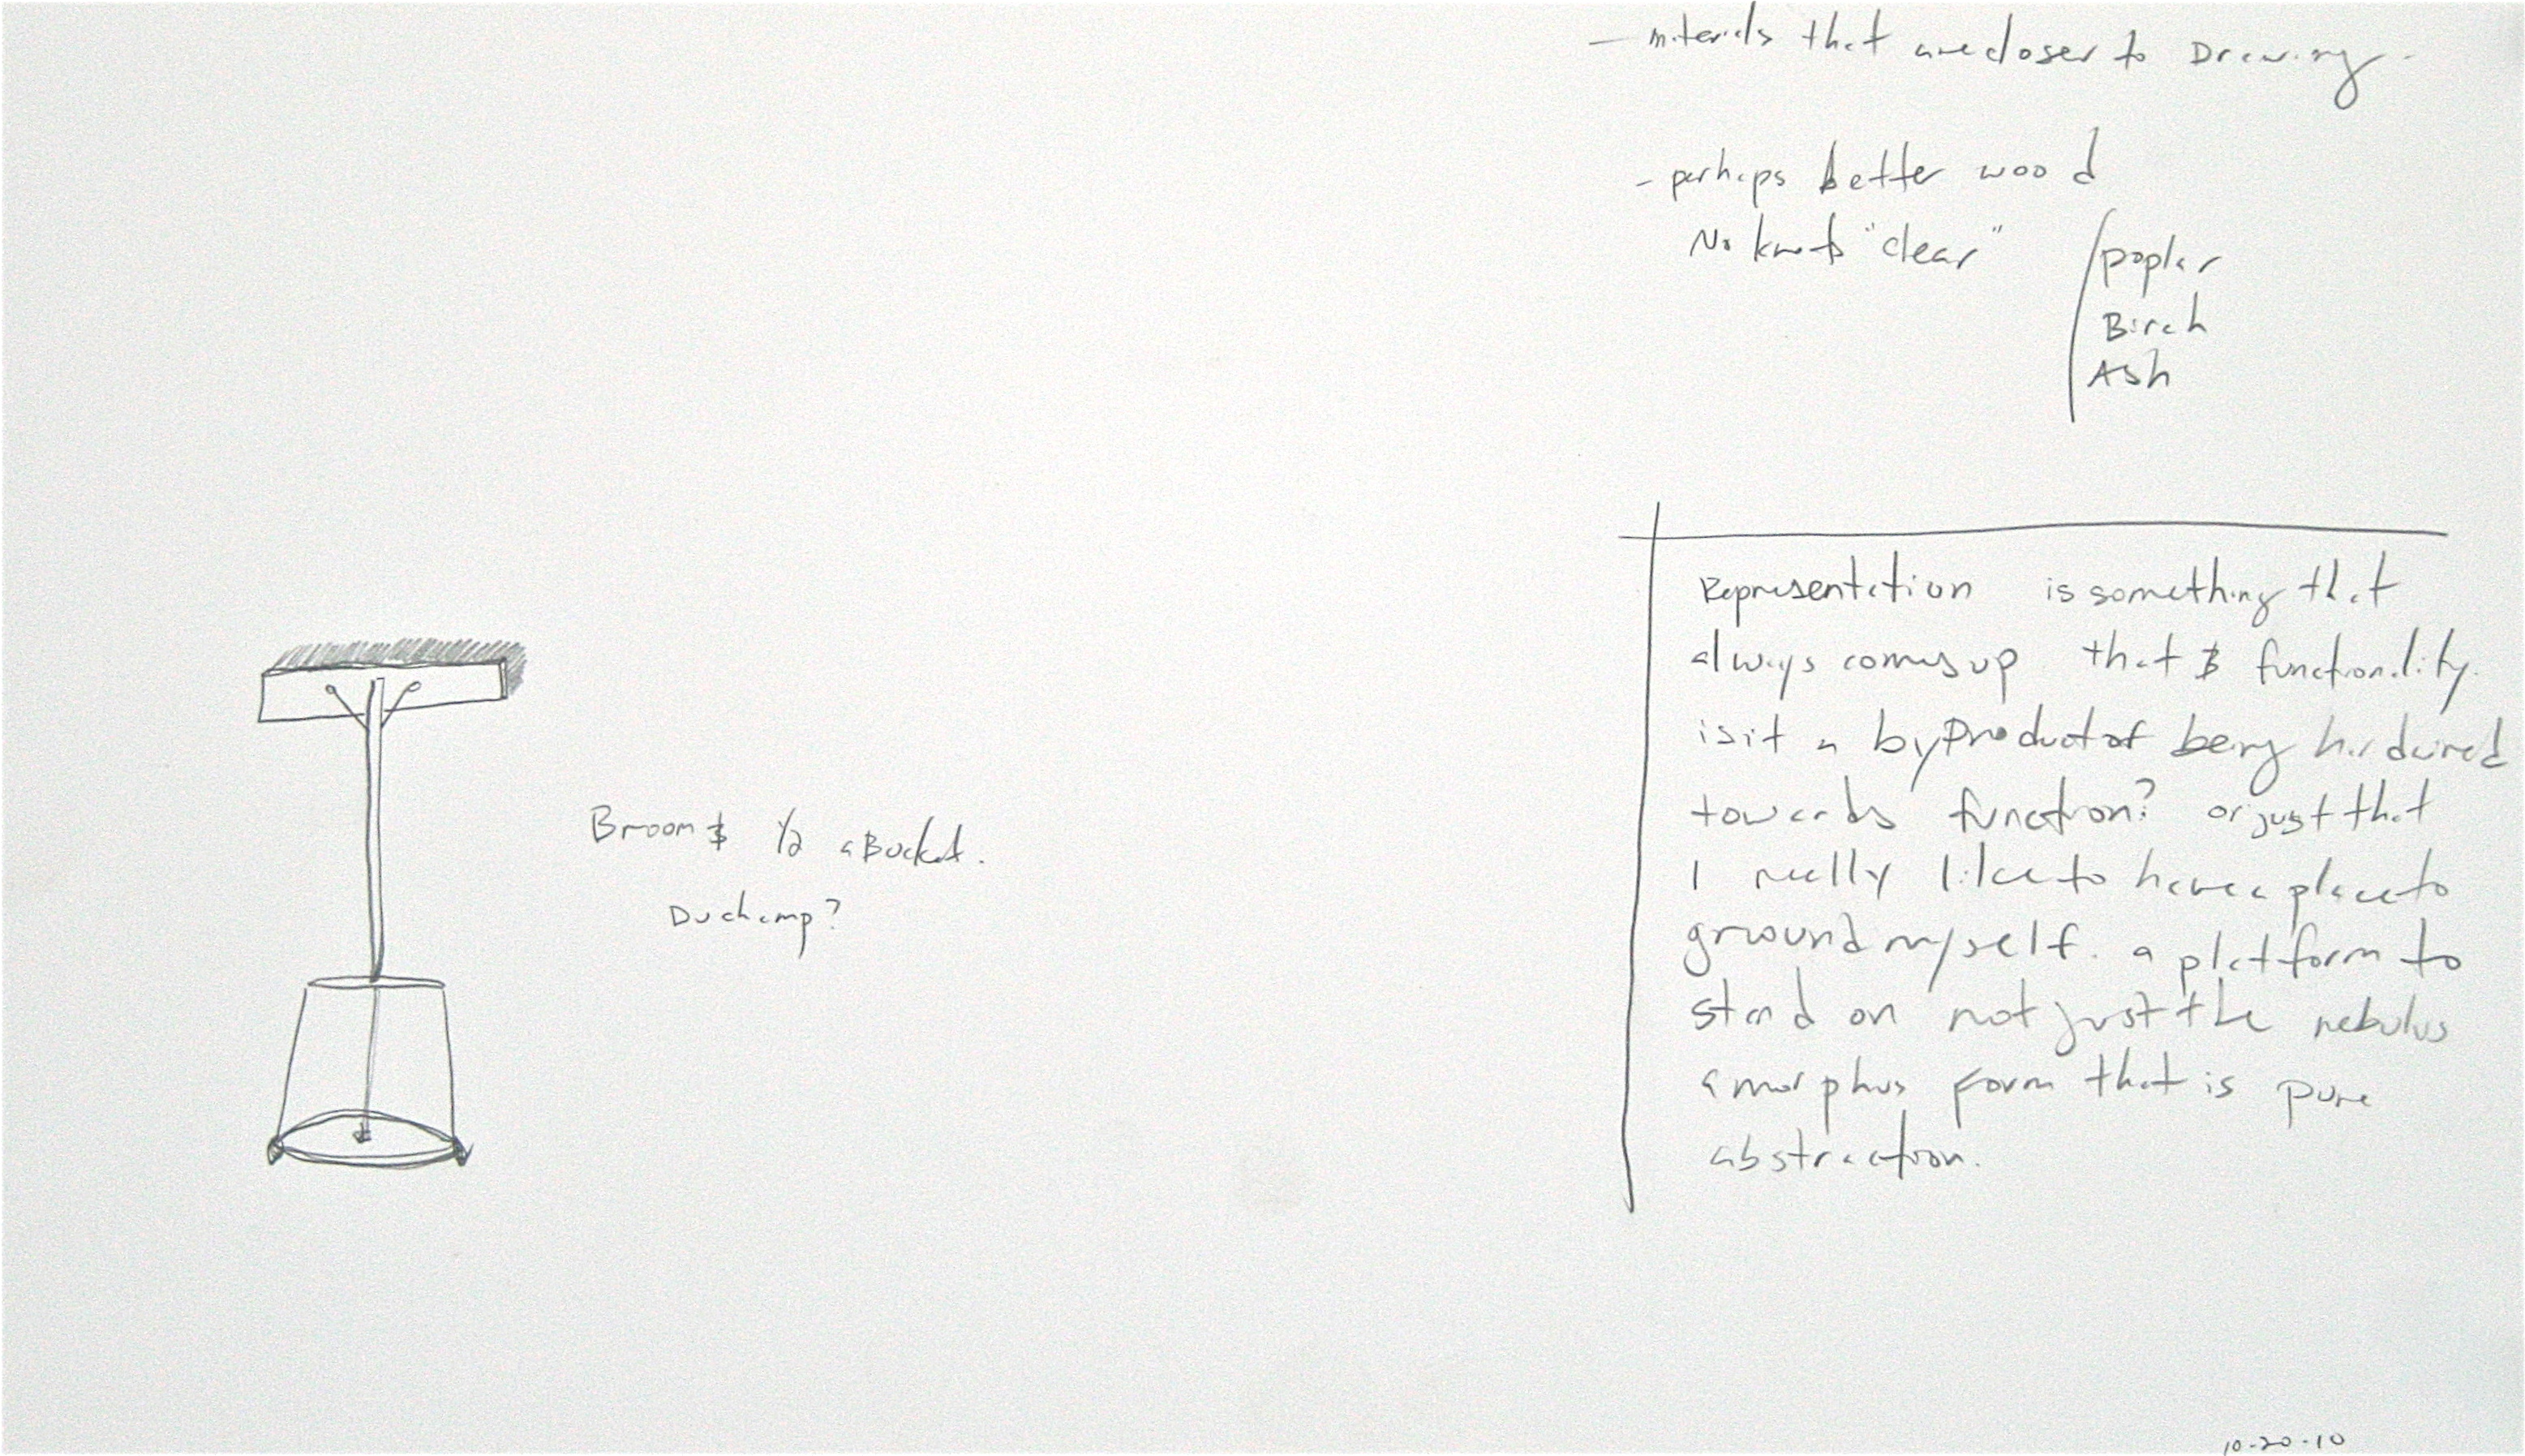 - materials that are closer to Drawing -
- perhaps better wood
No knots "clear"
poplar
Birch
Ash
Broom & 1/2 a Bucket.
Duchamp?
Representation is something that
always comes up that & functionality.
is it a byproduct of being hardwired
towards function? or just that
I really like to have a place to
ground myself. a platform to
stand on not just the nebulus
amorphus form that is pure
abstraction.
10-20-10